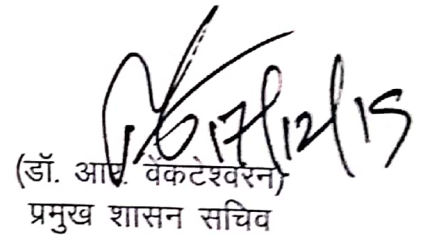 17/12/15
(डॉ. आर. वेंकटेश्वरन)
प्रमुख शासन सचिव